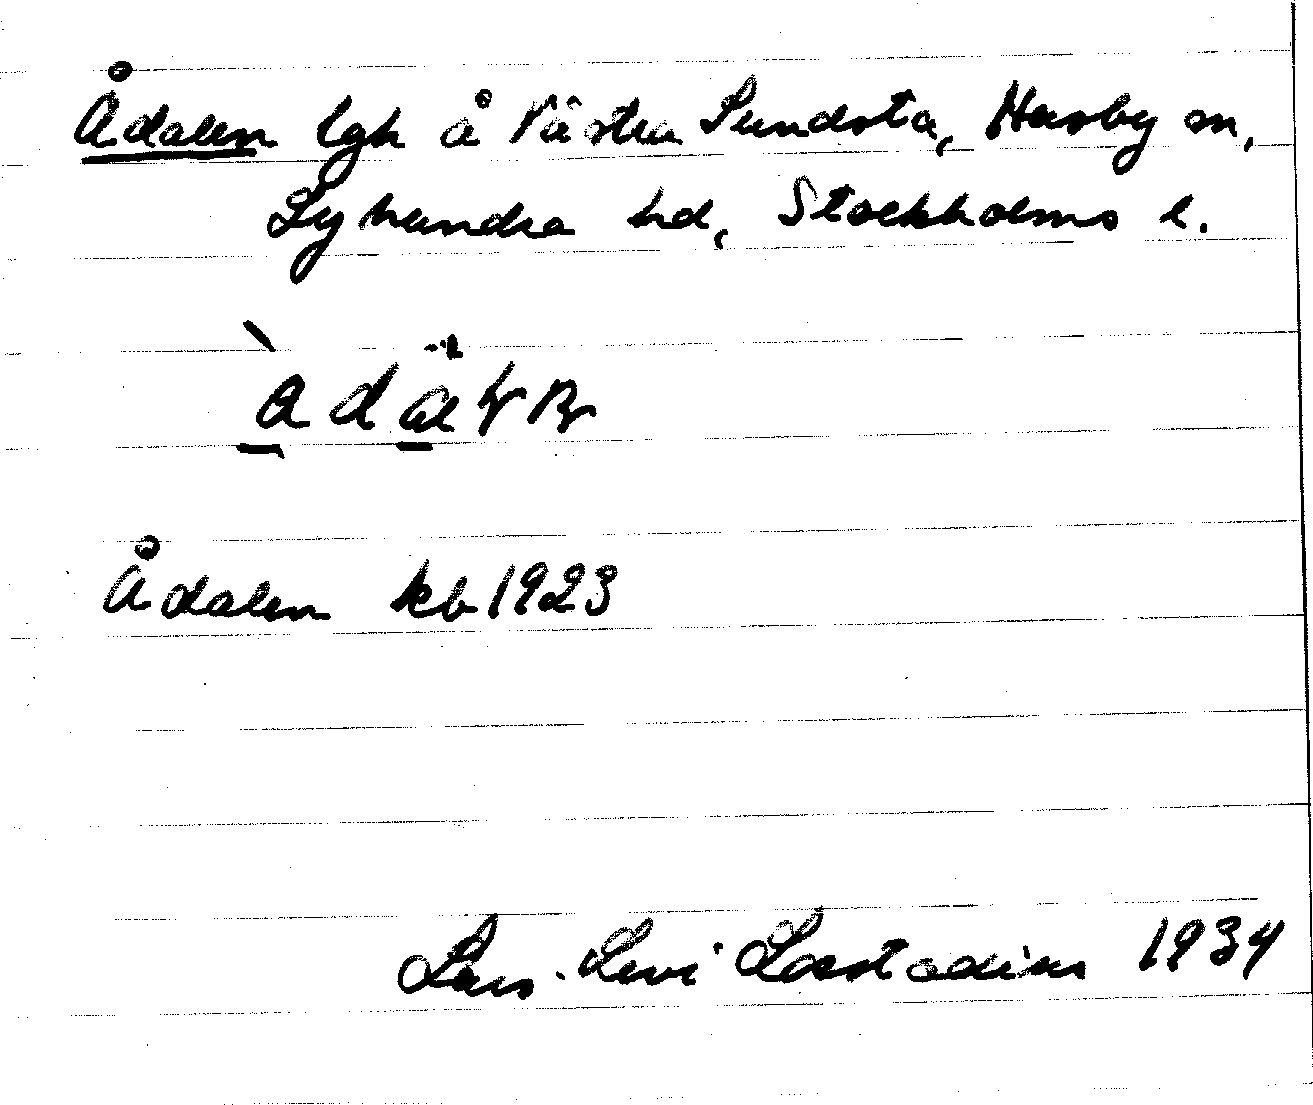 Ådalen lgh å Västra Sundsta, Husby sn,
Lyhundra hd, Stockholms l.
Ådalen kb 1923
Lars-Levi Læstadius 1934